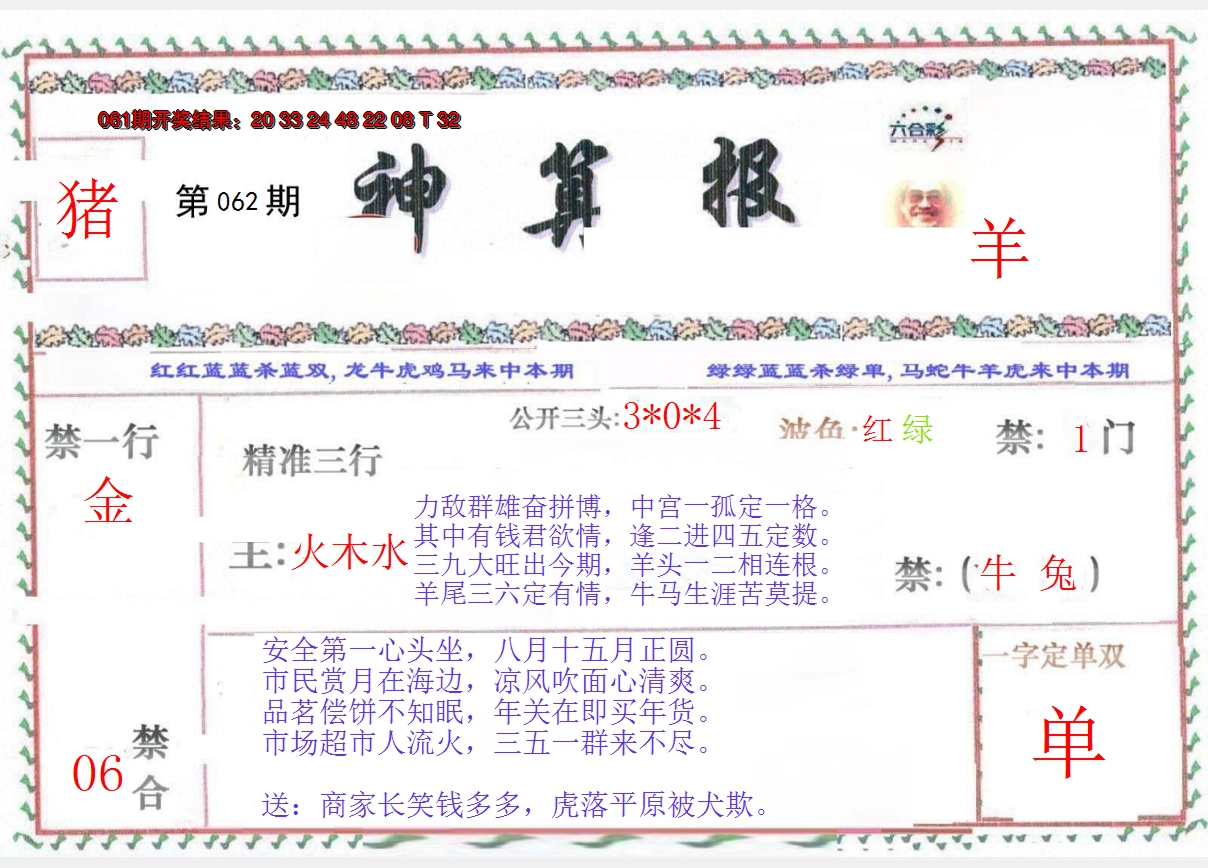 061期开奖结果：20 33 24 48 22 08 T 32
六合彩
猪
第062期
神算报
羊
红红蓝蓝杀蓝双,龙牛虎鸡马来中本期
绿绿蓝蓝杀绿单,马蛇牛羊虎来中本期
禁一行
金
精准三行
公开三头:3*0*4
波色:红 绿
禁: 1门
主:火木水
力敌群雄奋拼博，中宫一孤定一格。
其中有钱君欲情，逢二进四五定数。
三九大旺出今期，羊头一二相连根。
羊尾三六定有情，牛马生涯苦莫提。
禁:(牛 兔)
安全第一心头坐，八月十五月正圆。
市民赏月在海边，凉风吹面心清爽。
品茗偿饼不知眠，年关在即买年货。
市场超市人流火，三五一群来不尽。
送：商家长笑钱多多，虎落平原被犬欺。
06
禁合
一字定单双
单